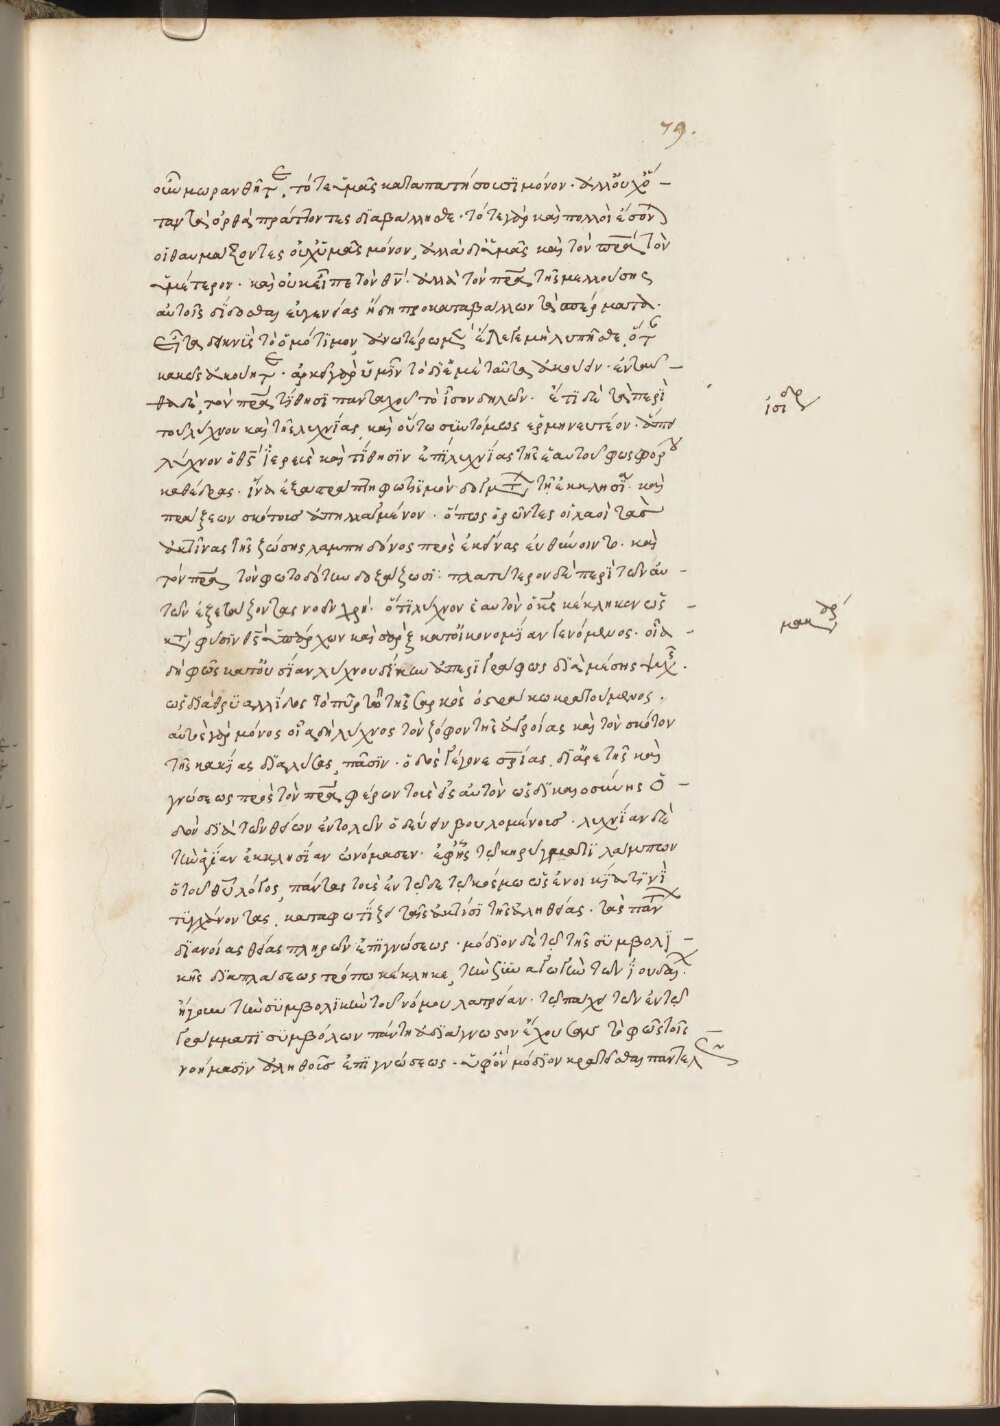 79.
οὖν μωρανθῆτε, τότε ὑμᾶς καταπατήσουσι μόνον. ἀλλ' οὐχ ὅ-
ταν τὰ ὀρθὰ πράττοντες διαβάλλησθε. τότε γὰρ καὶ πολλοὶ ἔσονται
οἱ θαυμάζοντες οὐχ ὑμᾶς μόνον, ἀλλὰ δι' ὑμᾶς καὶ τὸν πρα τὸν
ὑμέτερον. καὶ οὐκ εἶπε τὸν θν. ἀλλὰ τὸν πρα τῆς μελλούσης
αὐτοῖς δίδοσθαι εὐγενείας ἤδη προκαταβάλλων τὰ σπέρματα.
εἶτα δεικνὺς τὸ ὁμότιμον, ἀνωτέρω μὲν ἔλεγε μὴ λυπῆσθε, ὅταν
κακῶς ἀκούητε. ἀρκεῖ γὰρ ὑμῖν τὸ δι' ἐμὲ ταῦτα ἀκούειν. ἐνταῦ-
θα δὲ, τὸν πρα τίθησι πανταχοῦ τὸ ἴσον δηλῶν. ἔτι δὲ τὰ περὶ
ἰσιδωρ
τοῦ λύχνου καὶ τῆς λυχνίας, καὶ οὕτω συντόμως ἑρμηνευτέον. ἅπτει
λύχνον ὁ θς ἱερεῖς καὶ τίθησιν ἐπὶ λυχνίας τῆς ἑαυτοῦ φωσφόρου
καθέδρας. ἵνα ἐξαστράπτῃ φωτισμὸν δογμάτων τῇ ἐκκλησίᾳ καὶ
πράξεων σκότους ἀπηλλαγμένον. ὅπως ὁρῶντες οἱ λαοὶ τὰς
ἀκτῖνας τῆς ζωῆς λαμπηδόνος πρὸς ἐκείνας εὐθύνοιντο. καὶ
τὸν πρα τῶν φώτων δοξάζωσι: πλατύτερον δὲ περὶ τῶν αὐ-
τῶν ἐξετάζοντας νοεῖν χρή. ὅτι λύχνον ἑαυτὸν ὁ κς κέκληκεν ὡς
μακαρ
κατὰ φύσιν θς ὑπάρχων καὶ σὰρξ κατ' οἰκονομίαν γενόμενος. οἷα
δὴ φῶς κατ' οὐσίαν λύχνου δίκην ἀπεριγράφως διὰ μέσης ψυχῆς.
ὡς διὰ θρυαλλίδος τὸ πῦρ τῷ τῆς σαρκὸς ὀστράκῳ κρατούμενος.
αὐτὸς γὰρ μόνος οἷα δὴ λύχνος τὸν ζόφον τῆς ἀγνοίας καὶ τὸν σκότον
τῆς κακίας διαλύσας, πᾶσιν. ὁδὸς γέγονε σριας, δι' ἀρετῆς καὶ
γνώσεως πρὸς τὸν πρα φέρων τοὺς εἰς αὐτὸν ὡς δικαιοσύνης ὁ-
δὸν διὰ τῶν θείων ἐντολῶν ὁδεύειν βουλομένους. λυχνίαν δὲ
τὴν ἁγίαν ἐκκλησίαν ὠνόμασεν. ἐφ' ἧς τῷ κηρύγματι λάμπων
ὁ τοῦ θυ λόγος, πάντας τοὺς ἐν τῷδε τῷ κόσμῳ ὡς ἐν οἰκίᾳ τινὶ
τυγχάνοντας, καταφωτίζει ταῖς ἀκτῖσι τῆς ἀληθείας. τὰς πάντων
διανοίας θείας πληρῶν ἐπιγνώσεως. μόδιον δὲ τῷ τῆς συμβολι-
κῆς διαπλάσεως τρόπῳ κέκληκε, τὴν συναγωγὴν τῶν ἰουδαίων.
ἤγουν τὴν συμβολικὴν τοῦ νόμου λατρείαν. τῷ πάχει τῶν ἐν τῷ
γράμματι συμβόλων πάντη ἀδιάγνωστον ἔχουσαν τὸ φῶς τοῖς-
νοήμασιν ἀληθοῦς ἐπιγνώσεως. ὑφ' ὃν μόδιον κρατεῖσθαι παντελῶς